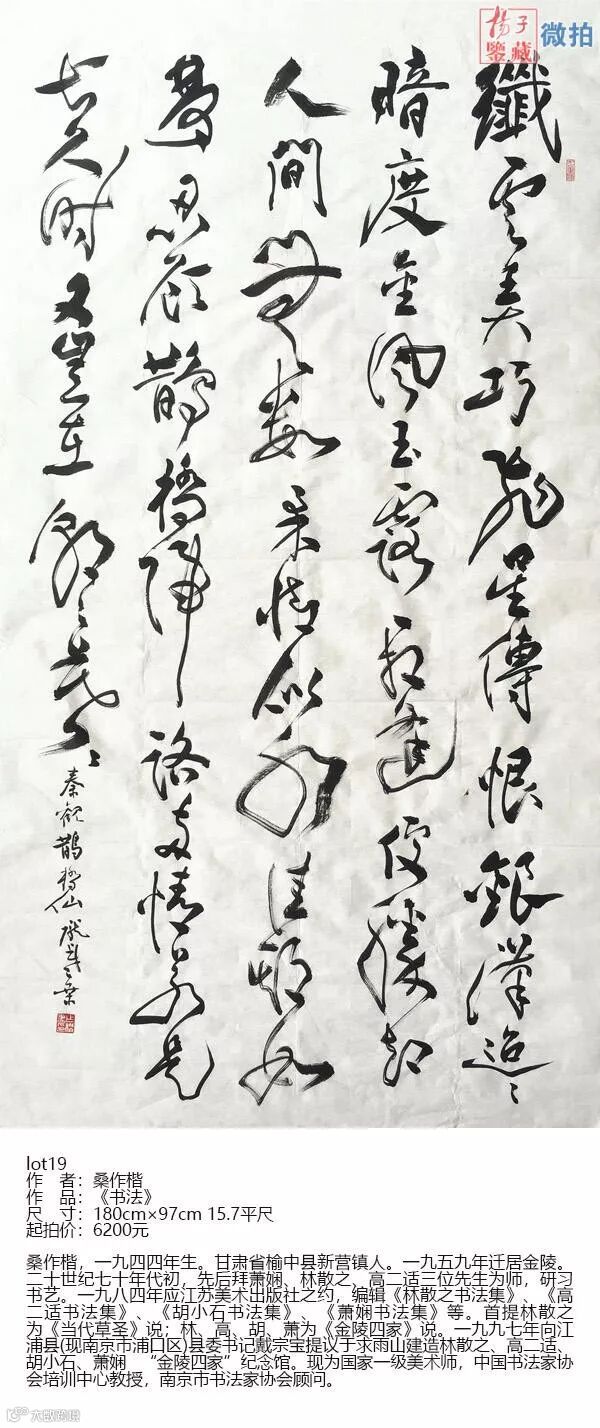 揚子鑒藏 微拍
纖雲弄巧飛星傳恨銀漢迢々
暗度金風玉露一相逢便勝却
人間無數柔情似水佳期如
夢忍顧鵲橋歸路兩情若是
長久時又豈在朝々暮々
秦觀鵲橋仙
lot19
作 者：桑作楷
作 品：《书法》
尺 寸：180cm×97cm 15.7平尺
起拍价：6200元
桑作楷，一九四四年生。甘肃省榆中县新营镇人。一九五九年迁居金陵。
二十世纪七十年代初，先后拜萧娴、林散之、高二适三位先生为师，研习
书艺。一九八四年应江苏美术出版社之约，编辑《林散之书法集》、《高
二适书法集》、《胡小石书法集》、《萧娴书法集》等。首提林散之
为《当代草圣》说；林、高、胡、萧为《金陵四家》说。一九九七年向江
浦县(现南京市浦口区)县委书记戴宗宝提议于求雨山建造林散之、高二适、
胡小石、萧娴 “金陵四家”纪念馆。现为国家一级美术师，中国书法家协
会培训中心教授，南京市书法家协会顾问。
大敏跨境